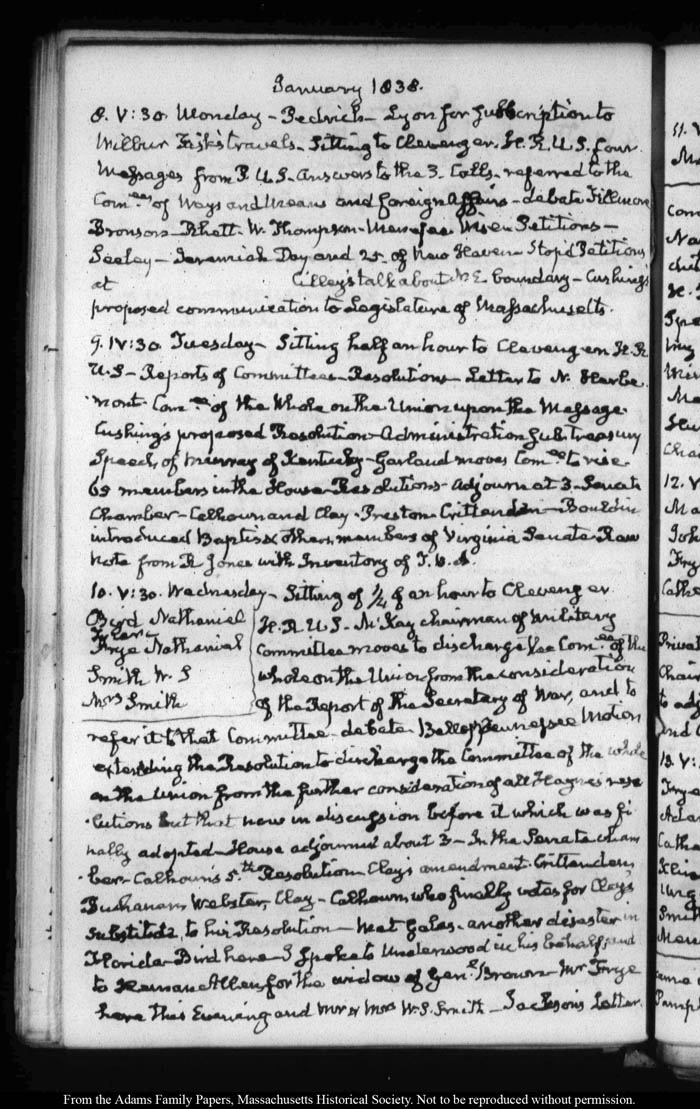 January 1838.
8. V:30. Monday – Pedrick – Lyon for Subscription to
Wilbur Fisk's travels – Sitting to Clevenger. H.R.U.S. four
Messages from P. U.S. answers to the 3. Calls – referred to the
Com^ees of Ways and Means and foreign Affairs – debate Fillmore
Bronson – Rhett – W. Thompson – Menefee Wise – Petitions –
Seeley – Jeremiah Day and 25. of New Haven – Stop'd Petitions
at Cilley's talk about N.E. boundary – Cushing's
proposed communication to Legislature of Massachusetts.
9. IV:30. Tuesday – Sitting half an hour to Clevenger. H.R.
U.S – Reports of Committees – Resolutions – Letter to N. Herbe
mont. Com^ee of the Whole on the Union upon the Message.
Cushing's proposed Resolution – Administration Subtreasury
Speech, of Murray of Kentucky – Garland moves Com^ee to rise
69 members in the House – Resolutions – Adjourn at 3 – Senate
Chamber – Calhoun and Clay – Preston Crittenden – Bouldin
introduced Baptist & other members of Virginia Senate
note from R Jones with Inventory of
10. V:30. Wednesday – Sitting of 1/4 of an hour to Clevenger
Bird Nathaniel
Frye Nathaniel
Smith W. S
Mrs Smith
H.R.U.S – McKay chairman of Military
Committee moves to discharge the Com^ee of the
whole on the Union from the consideration
of the Report of the Secretary of War, and to
refer it to that Committee – debate. Bell of Tennessee Motion
extending the Resolution to discharge the Committee of the whole
on the Union from the further consideration of all Haynes's reso
lutions but that now in discussion before it which was fi
nally adopted – House adjourned about 3 – In the Senate cham
ber – Calhoun's 5.th Resolution – Clay's amendment – Crittenden,
Buchanan, Webster, Clay – Calhoun, who finally votes for Clay's
Substitute to his Resolution – Met Gales – another disaster in
Florida – Bird here – I spoke to Underwood in his behalf, and
to Heman Allen for the widow of Gen.l Brown – Mr Frye
here this Evening and Mr & Mrs W. S. Smith – Jackson's Letter.
11. V
Ma
Com
12. V
Ma
Joh
Frye
Cathe
Privat
Chair
to adj
and
13. V:
Frye
Adam
Catha
Smith
From the Adams Family Papers, Massachusetts Historical Society. Not to be reproduced without permission.